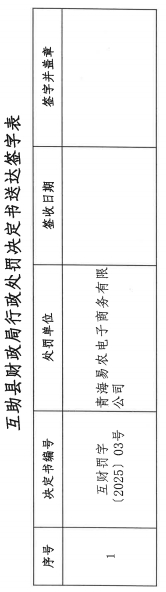 互助县财政局行政处罚决定书送达签字表
序号 决定书编号 处罚单位 签收日期 签字并盖章
1 互财罚字 青海易农电子商务有限
〔2025〕03号 公司